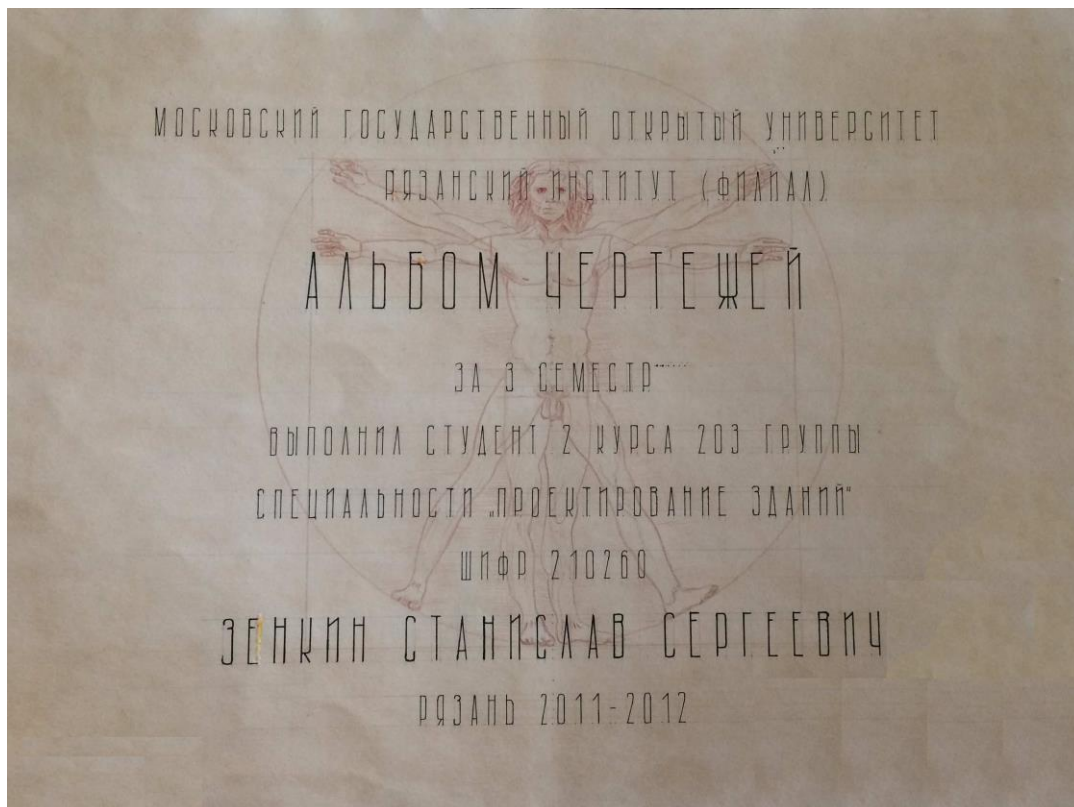 МОСКОВСКИЙ ГОСУДАРСТВЕННЫЙ ОТКРЫТЫЙ УНИВЕРСИТЕТ
РЯЗАНСКИЙ ИНСТИТУТ (ФИЛИАЛ)
АЛЬБОМ ЧЕРТЕЖЕЙ
ЗА 3 СЕМЕСТР
ВЫПОЛНИЛ СТУДЕНТ 2 КУРСА 203 ГРУППЫ
СПЕЦИАЛЬНОСТИ „ПРОЕКТИРОВАНИЕ ЗДАНИЙ“
ШИФР 210260
ЗЕНКИН СТАНИСЛАВ СЕРГЕЕВИЧ
РЯЗАНЬ 2011-2012